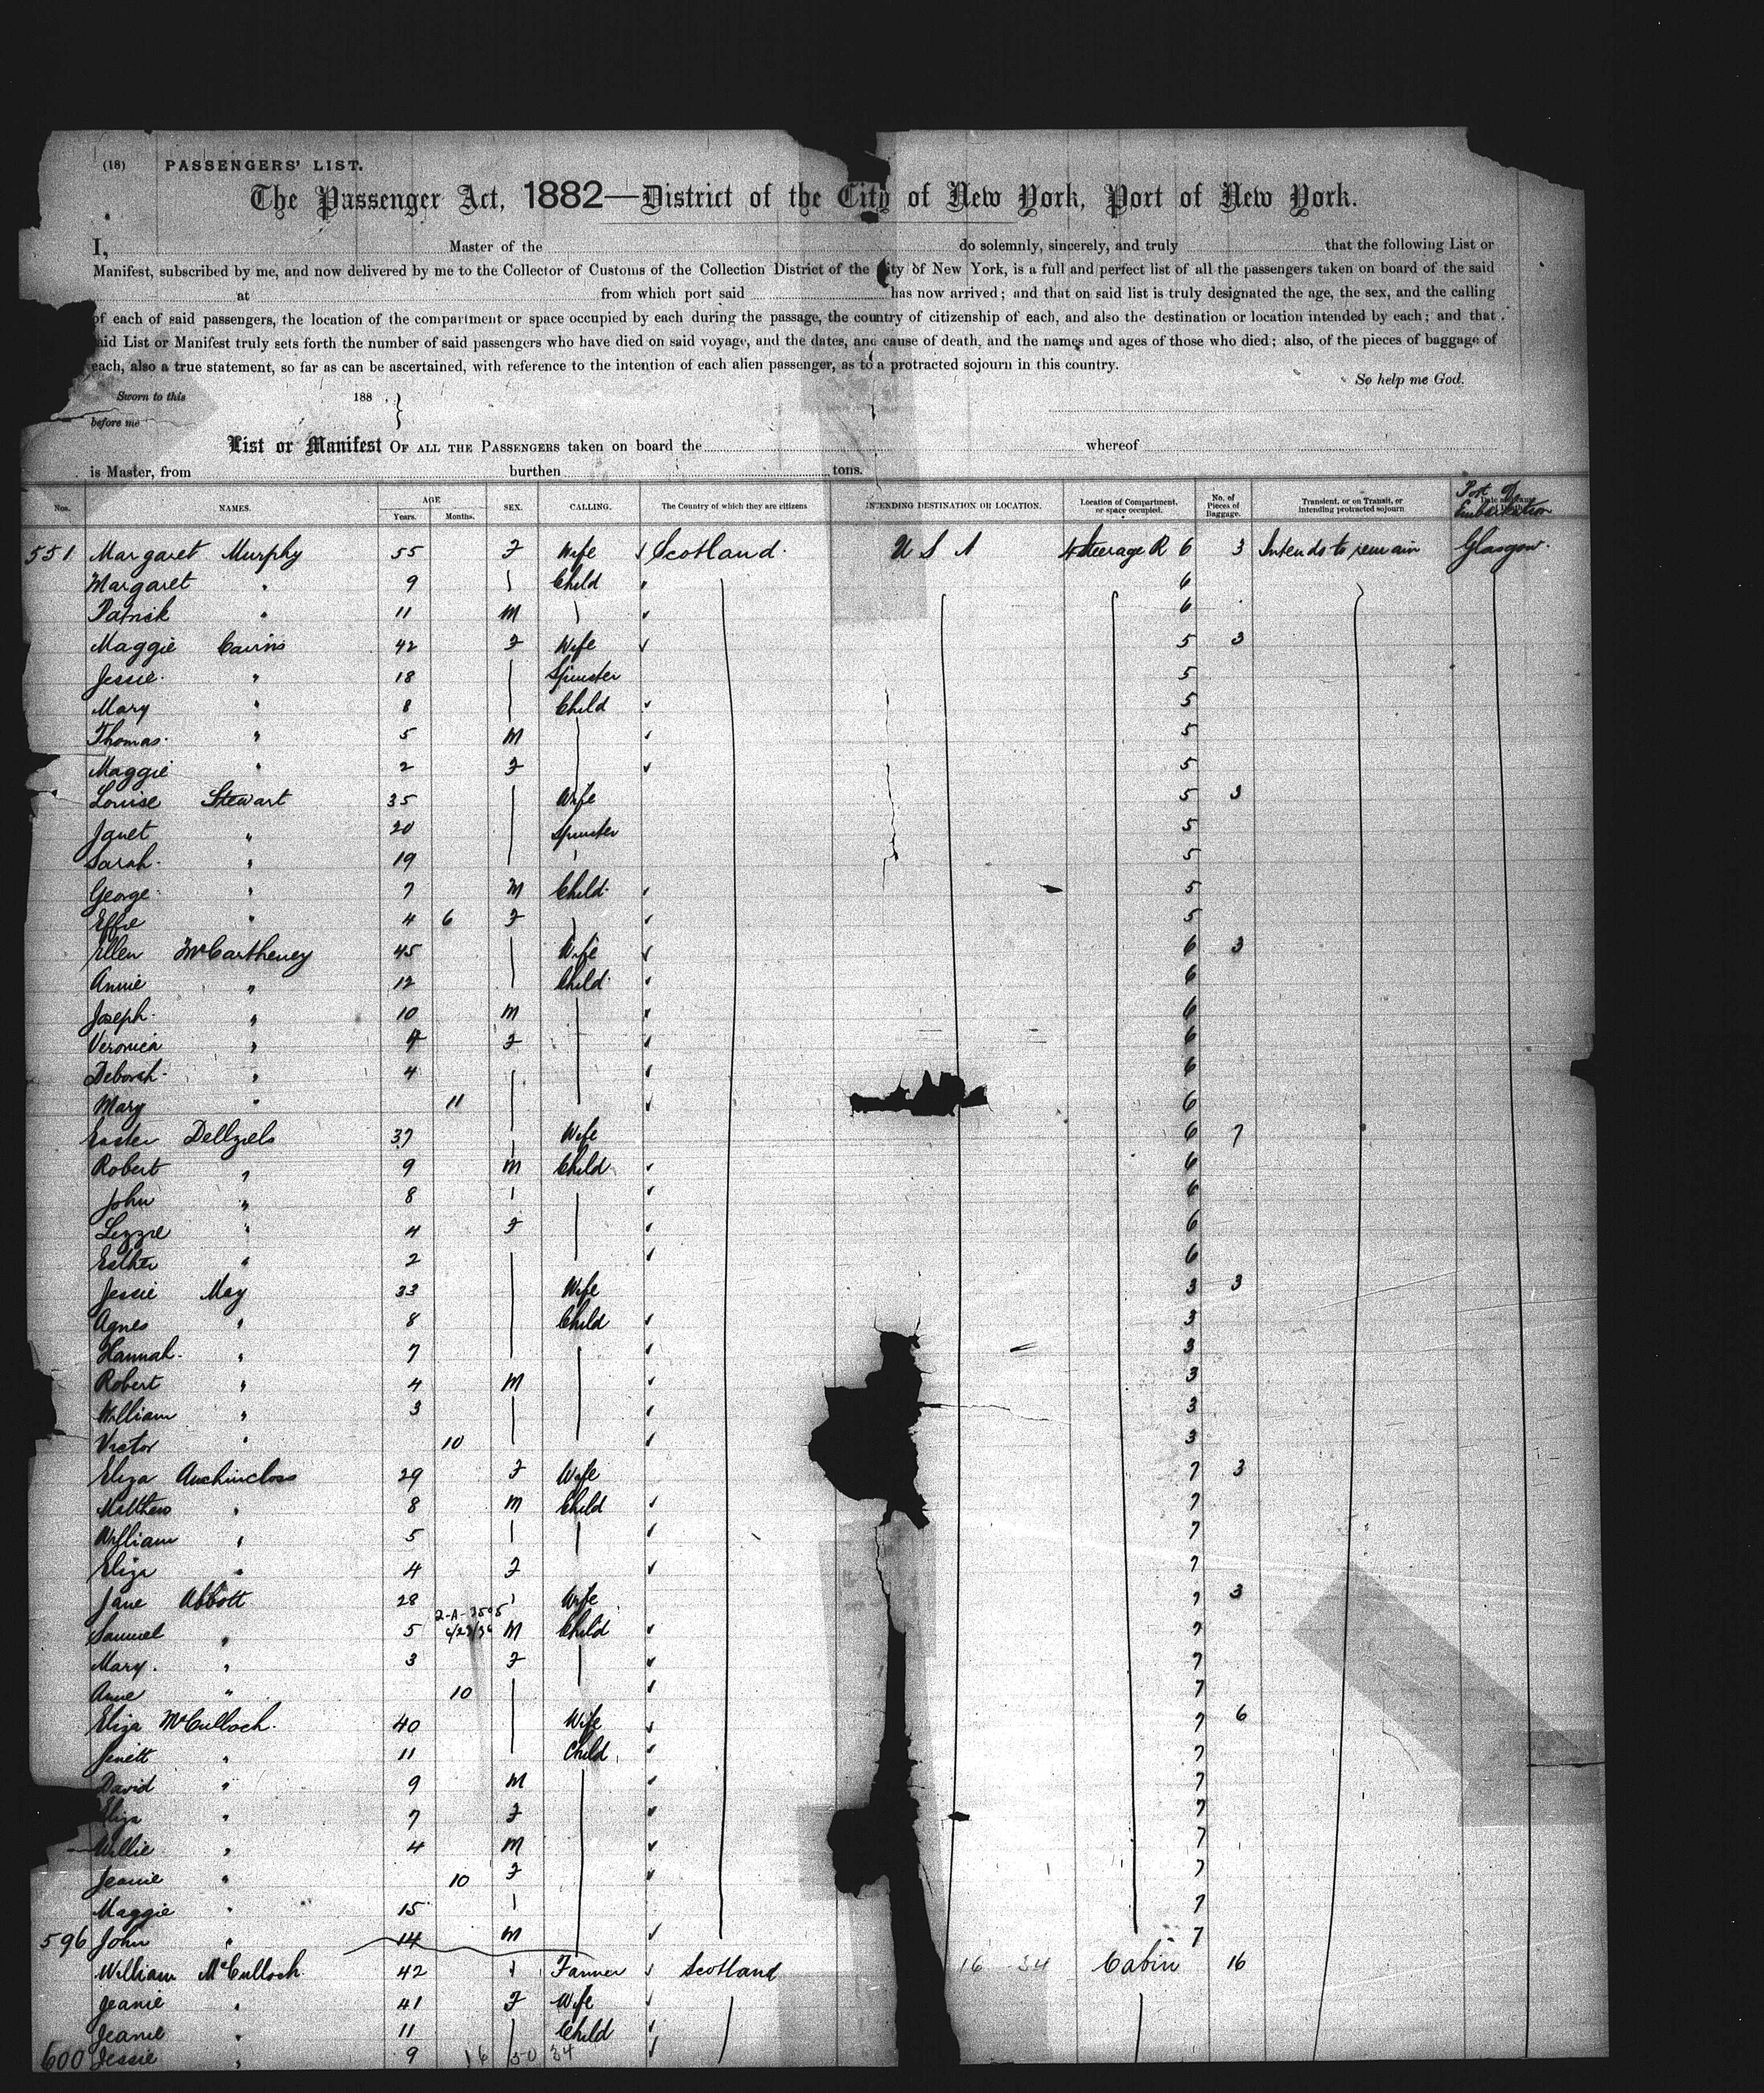 (18) PASSENGERS' LIST.
The Passenger Act, 1882—District of the City of New York, Port of New York.
I, Master of the do solemnly, sincerely, and truly that the following List or
Manifest, subscribed by me, and now delivered by me to the Collector of Customs of the Collection District of the City of New York, is a full and perfect list of all the passengers taken on board of the said
at from which port said has now arrived; and that on said list is truly designated the age, the sex, and the calling
of each of said passengers, the location of the compartment or space occupied by each during the passage, the country of citizenship of each, and also the destination or location intended by each; and that
said List or Manifest truly sets forth the number of said passengers who have died on said voyage, and the dates, and cause of death, and the names and ages of those who died; also, of the pieces of baggage of
each, also a true statement, so far as can be ascertained, with reference to the intention of each alien passenger, as to a protracted sojourn in this country.
So help me God.
Sworn to this 188 .
before me
List or Manifest OF ALL THE PASSENGERS taken on board the whereof
is Master, from burthen tons.
Nos. NAMES. AGE Years. Months. SEX. CALLING. The Country of which they are citizens INTENDING DESTINATION OR LOCATION. Location of Compartment, or space occupied. No. of Pieces of Baggage. Transient, or on Transit, or intending protracted sojourn Port of Embarkation
551 Margaret Murphy 55 F Wife Scotland U S A Steerage R 6 3 Intends to remain Glasgow
Margaret " 9 Child 6
Patrick " 11 M 6
Maggie Cairns 42 F Wife 5 3
Jessie " 18 Spinster 5
Mary " 8 Child 5
Thomas " 5 M 5
Maggie " 2 F 5
Louise Stewart 35 Wife 5 3
Janet " 20 Spinster 5
Sarah " 19 5
George " 7 M Child 5
Effie " 4 6 F 5
Ellen McCartheney 45 Wife 6 3
Annie " 12 Child 6
Joseph " 10 M 6
Veronica " F 6
Deborah " 4 6
Mary " 11 6
Easter Dellziels 37 Wife 6 7
Robert " 9 M Child 6
John " 8 6
Lizzie " 4 F 6
Esther " 2 6
Jessie May 33 Wife 3 3
Agnes " 8 Child 3
Hannah " 7 3
Robert " 4 M 3
William " 3 3
Victor " 10 3
Eliza Auchincloss 29 F Wife 7 3
Matthew " 8 M Child 7
William " 5 7
Eliza " 4 F 7
Jane Abbott 28 Wife 7 3
Samuel " 5 M Child 7
Mary " 3 F 7
Anne " 10 7
Eliza McCulloch 40 Wife 7 6
Jenett " 11 Child 7
David " 9 M 7
Eliza " 7 F 7
Willie " 4 M 7
Jeanie " 10 F 7
Maggie " 15 7
596 John " 14 M 7
William McCulloch 42 Farmer Scotland 16 34 Cabin 16
Jeanie " 41 F Wife
Jeanie " 11 Child
600 Jessie " 9 16 50 34